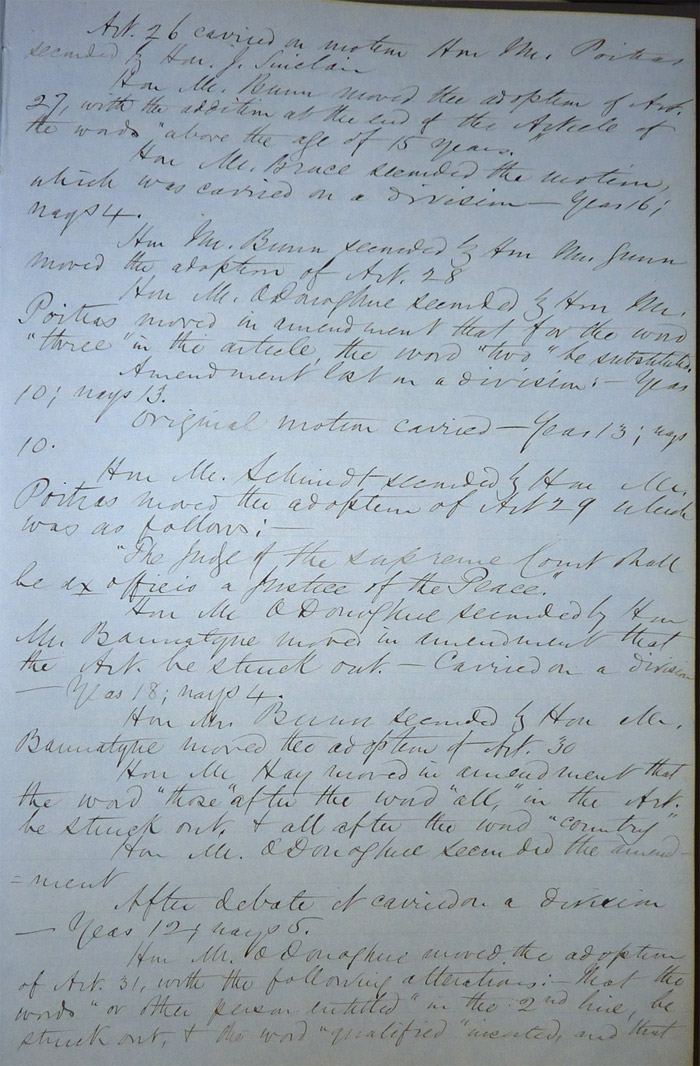 Art. 26 carried on motion Hon Mr. Poitras
seconded by Hon. J. Sinclair
Hon Mr. Bunn moved the adoption of Art.
27, with the addition at the end of the Article of
the words "above the age of 15 years."
Hon Mr. Bruce seconded the motion,
which was carried on a division — Yeas 16;
nays 4.
Hon Mr. Bunn seconded by Hon Mr. Gunn
moved the adoption of Art. 28
Hon Mr. O'Donoghue seconded by Hon Mr.
Poitras moved in amendment that for the word
"three" in the article, the word "two" be substituted.
Amendment lost on a division: — Yeas
10; nays 13.
Original motion carried — Yeas 13; nays
10.
Hon Mr. Schmidt seconded by Hon Mr.
Poitras moved the adoption of Art 29 which
was as follows: —
"The Judge of the supreme Court shall
be ex officio a Justice of the Peace."
Hon Mr O'Donoghue seconded by Hon
Mr. Bannatyne moved in amendment that
the Art. be struck out. — Carried on a division
— Yeas 18; nays 4.
Hon Mr. Bunn seconded by Hon Mr.
Bannatyne moved the adoption of Art. 30
Hon Mr Hay moved in amendment that
the word "those" after the word "all," in the Art.
be struck out, & all after the word "country"
Hon Mr. O'Donoghue seconded the amend-
=ment
After debate it carried on a division
— Yeas 12; nays 5.
Hon Mr. O'Donoghue moved the adoption
of Art. 31, with the following alterations: — That the
words "or other person entitled" in the 2nd line, be
struck out, & the word "qualified" inserted, and that